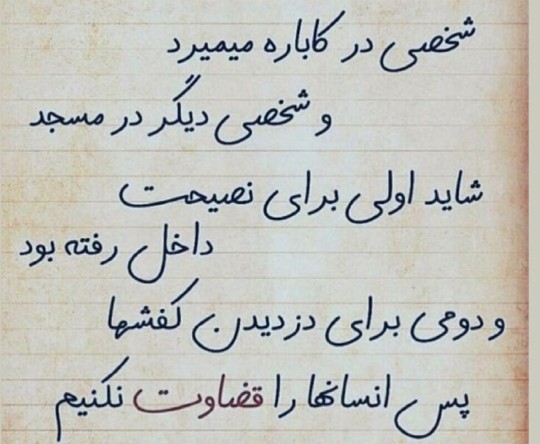 شخصی در کاباره میمیرد
و شخصی دیگر در مسجد
شاید اولی برای نصیحت
داخل رفته بود
و دومی برای دزدیدن کفشها
پس انسانها را قضاوت نکنیم